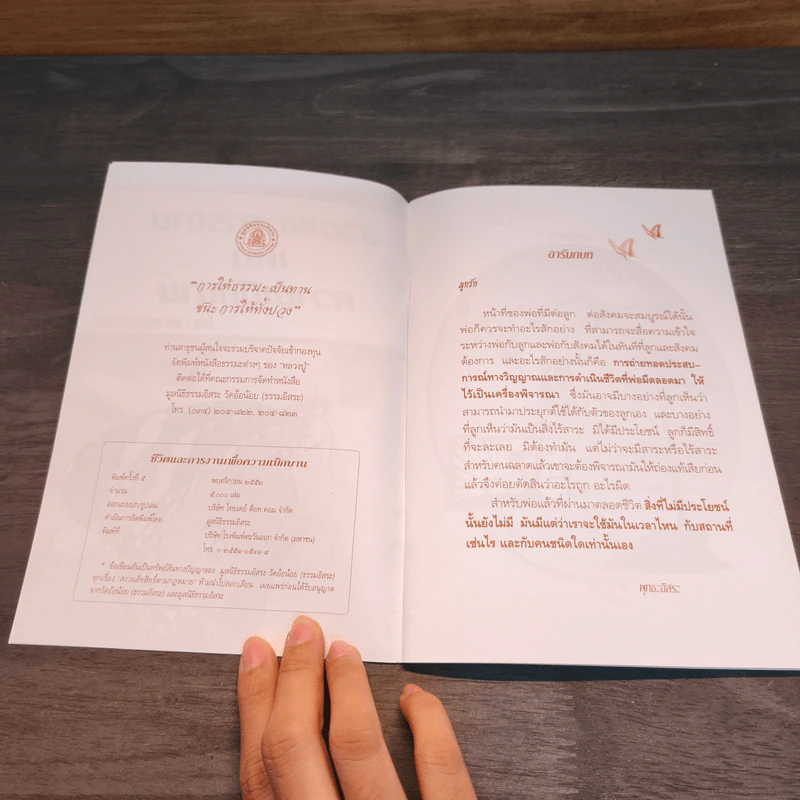 "การให้ธรรมะเป็นทาน
ชนะ การให้ทั้งปวง"
ท่านสาธุชนผู้สนใจจะร่วมบริจาคปัจจัยเข้ากองทุน
จัดพิมพ์หนังสือธรรมะต่างๆ ของ "หลวงปู่"
ติดต่อได้ที่คณะกรรมการจัดทำหนังสือ
มูลนิธิธรรมอิสระ วัดอ้อน้อย (ธรรมอิสระ)
โทร. (๐๓๔) ๒๐๔-๘๒๒, ๒๐๔-๘๒๓
ชีวิตและการงานเพื่อความเบิกบาน
พิมพ์ครั้งที่ ๕ พฤศจิกายน ๒๕๕๒
จำนวน ๕,๐๐๐ เล่ม
ออกแบบปก/รูปเล่ม บริษัท ไทยเดย์ ด็อท คอม จำกัด
ดำเนินการจัดพิมพ์โดย มูลนิธิธรรมอิสระ
พิมพ์ที่ บริษัท โรงพิมพ์ตะวันออก จำกัด (มหาชน)
โทร. ๐-๒๕๕๑-๐๕๔๑-๔
* ข้อเขียนอันเป็นทรัพย์สินทางปัญญาของ มูลนิธิธรรมอิสระ วัดอ้อน้อย (ธรรมอิสระ)
ทุกเรื่อง "สงวนลิขสิทธิ์ตามกฎหมาย" ห้ามนำไปลอกเลียน เผยแพร่ก่อนได้รับอนุญาต
จากวัดอ้อน้อย (ธรรมอิสระ) และมูลนิธิธรรมอิสระ
อารัมภบท
ลูกรัก
หน้าที่ของพ่อที่มีต่อลูก ต่อสังคมจะสมบูรณ์ได้นั้น
พ่อก็ควรจะทำอะไรสักอย่าง ที่สามารถจะสื่อความเข้าใจ
ระหว่างพ่อกับลูกและพ่อกับสังคมได้ในทันทีที่ลูกและสังคม
ต้องการ และอะไรสักอย่างนั้นก็คือ การถ่ายทอดประสบ-
การณ์ทางวิญญาณและการดำเนินชีวิตที่พ่อมีตลอดมา ให้
ไว้เป็นเครื่องพิจารณา ซึ่งมันอาจมีบางอย่างที่ลูกเห็นว่า
สามารถนำมาประยุกต์ใช้ได้กับตัวของลูกเอง และบางอย่าง
ที่ลูกเห็นว่ามันเป็นสิ่งไร้สาระ มิได้มีประโยชน์ ลูกก็มีสิทธิ์
ที่จะละเลย มิต้องทำมัน แต่ไม่ว่าจะมีสาระหรือไร้สาระ
สำหรับคนฉลาดแล้วเขาจะต้องพิจารณามันให้ถ่องแท้เสียก่อน
แล้วจึงค่อยตัดสินว่าอะไรถูก อะไรผิด
สำหรับพ่อแล้วที่ผ่านมาตลอดชีวิต สิ่งที่ไม่มีประโยชน์
นั้นยังไม่มี มันมีแต่ว่าเราจะใช้มันในเวลาไหน กับสถานที่
เช่นไร และกับคนชนิดใดเท่านั้นเอง
พุทธะอิสระ